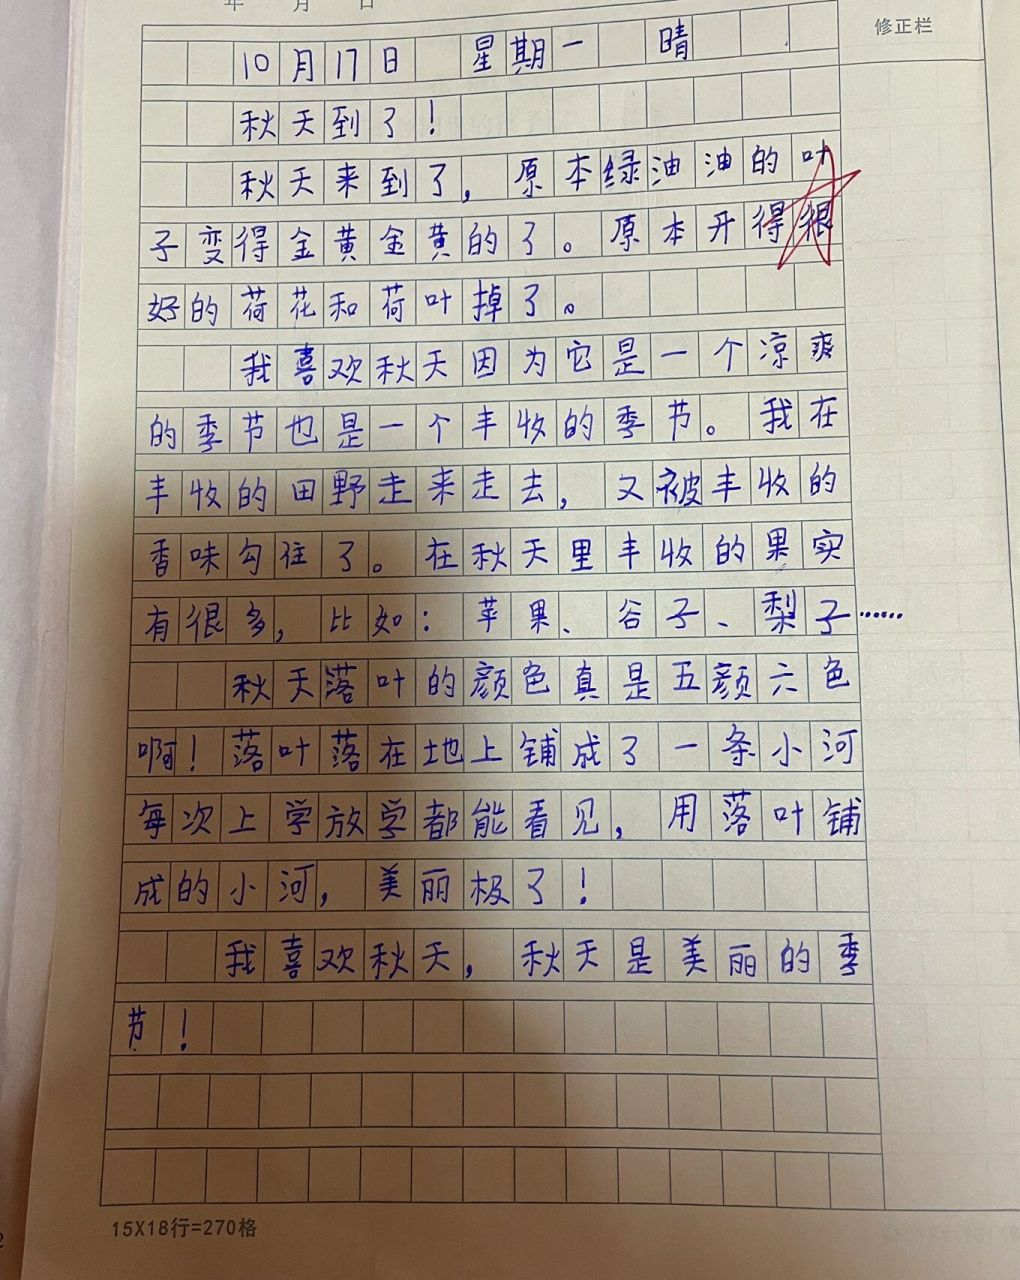 年 月 日
修正栏
10月17日 星期一 晴
秋天到了！
秋天来到了，原本绿油油的叶
子变得金黄金黄的了。原本开得很
好的荷花和荷叶掉了。
我喜欢秋天因为它是一个凉爽
的季节也是一个丰收的季节。我在
丰收的田野走来走去，又被丰收的
香味勾住了。在秋天里丰收的果实
有很多，比如：苹果、谷子、梨子……
秋天落叶的颜色真是五颜六色
啊！落叶落在地上铺成了一条小河
每次上学放学都能看见，用落叶铺
成的小河，美丽极了！
我喜欢秋天，秋天是美丽的季
节！
15X18行=270格